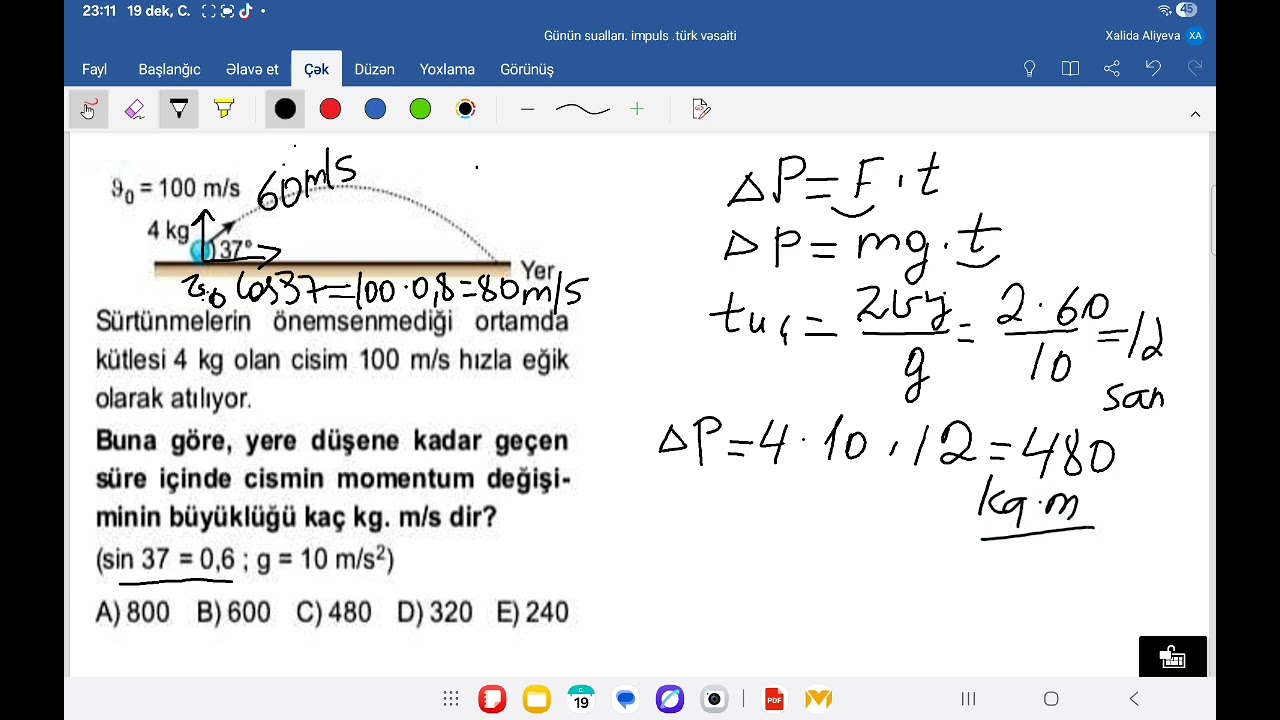 23:11 19 dek, C.
45
Günün sualları. impuls .türk vəsaiti
Xalida Aliyeva XA
Fayl Başlanğıc Əlavə et Çək Düzən Yoxlama Görünüş
ϑ₀ = 100 m/s 60 m/s
4 kg
37°
Yer
ϑ₀ Cos37=100·0,8=80m/s
Sürtünmelerin önemsenmediği ortamda
kütlesi 4 kg olan cisim 100 m/s hızla eğik
olarak atılıyor.
Buna göre, yere düşene kadar geçen
süre içinde cismin momentum değişi-
minin büyüklüğü kaç kg. m/s dir?
(sin 37 = 0,6 ; g = 10 m/s²)
A) 800 B) 600 C) 480 D) 320 E) 240
ΔP=F·t
ΔP=mg·t
tuç=2ϑy/g=2·60/10=12
san
ΔP=4·10·12=480
kq·m
19
PDF